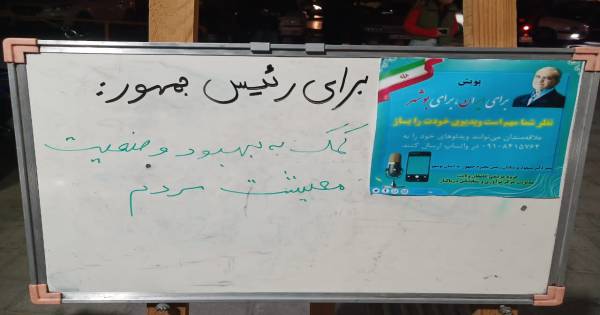 برای رئیس جمهور:
کمک به بهبود وضعیت
معیشت مردم
پویش
برای ایران، برای بوشهر
نظر شما مهم است ویدیوی خودت را بساز
علاقه‌مندان می‌توانند ویدئوهای خود را به
۰۹۱۰۸۴۱۵۷۶۲ در واتساپ ارسال کنند